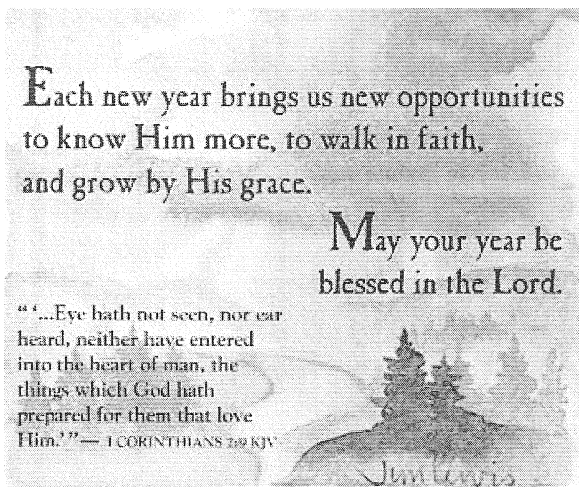 Each new year brings us new opportunities
to know Him more, to walk in faith,
and grow by His grace.
May your year be
blessed in the Lord.
“ ‘...Eye hath not seen, nor ear
heard, neither have entered
into the heart of man, the
things which God hath
prepared for them that love
Him.’ ”— 1 CORINTHIANS 2:9 KJV
Jim Lewis